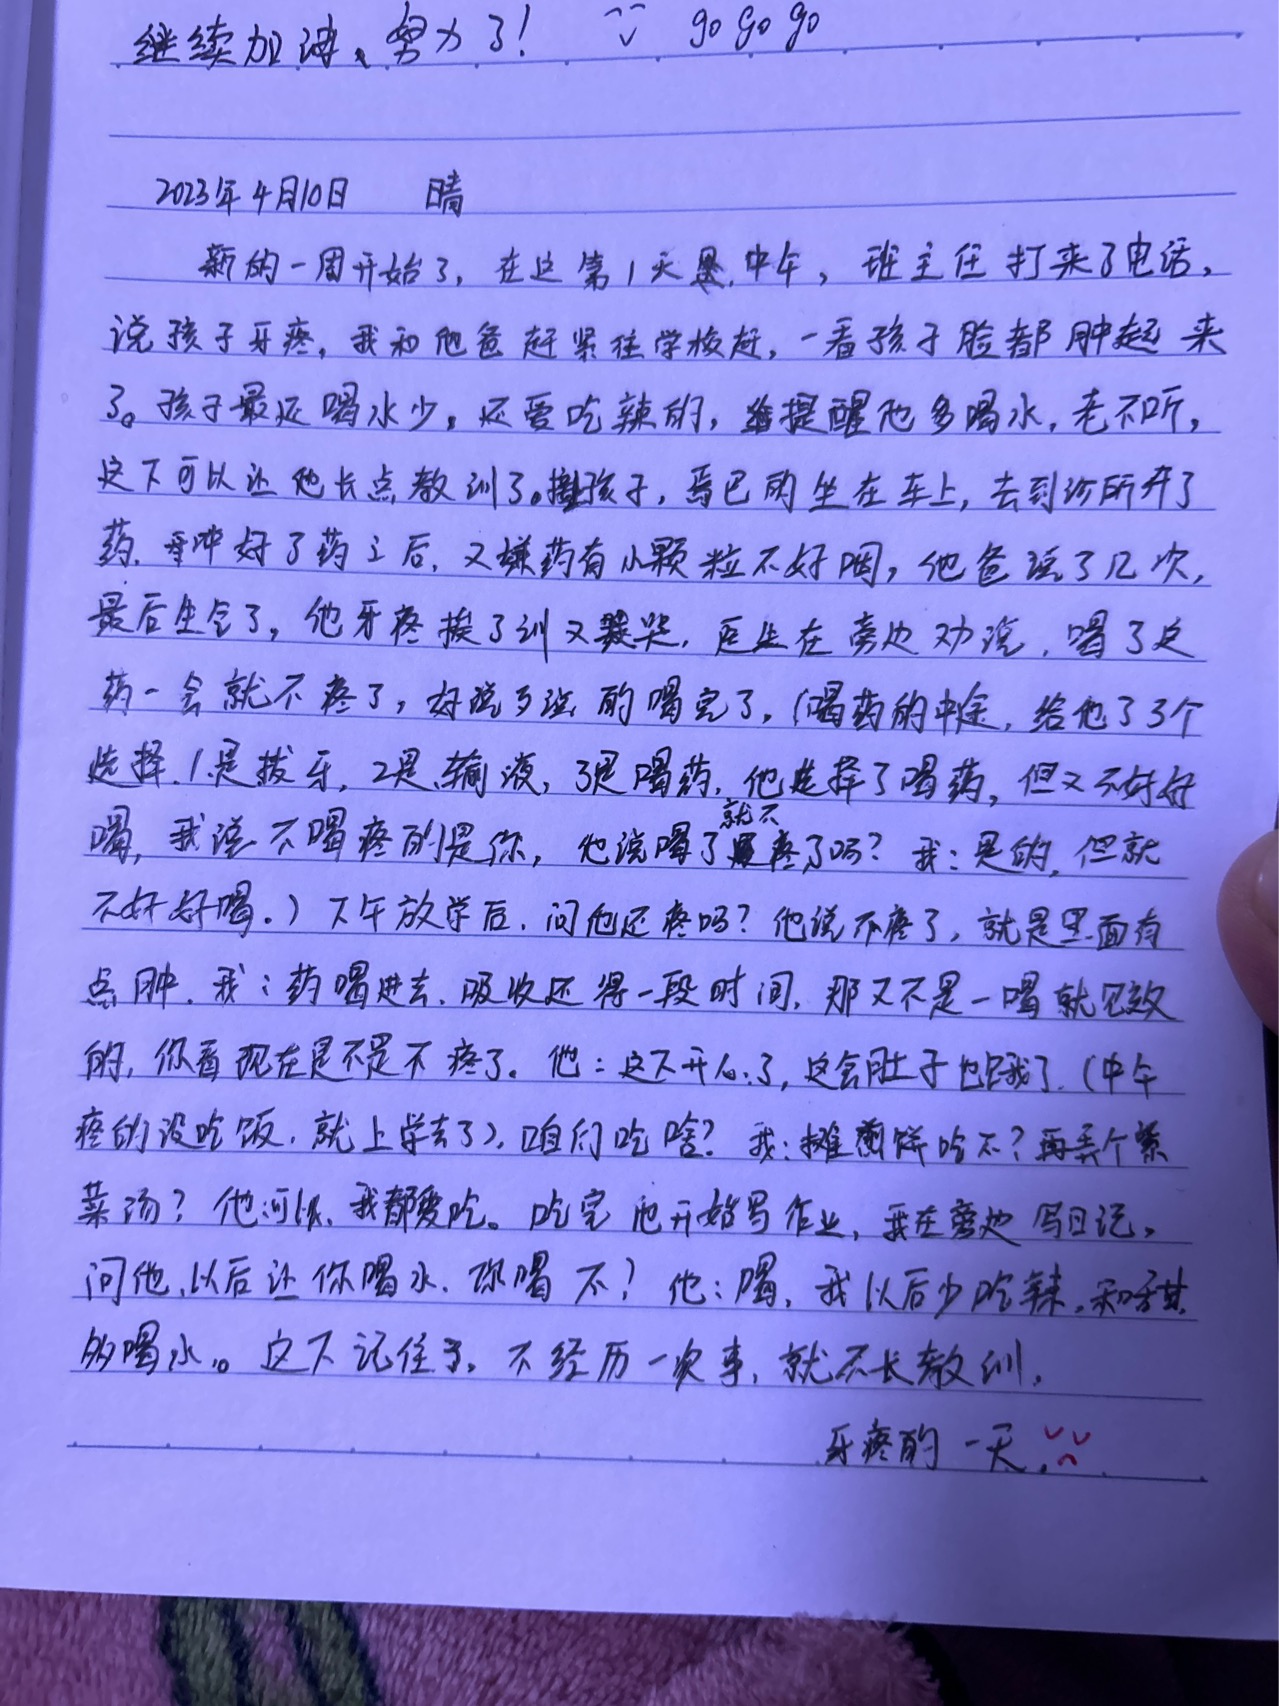 继续加油、努力了! go go go
2023年4月10日 晴
新的一周开始了,在这第1天中午,班主任打来了电话,
说孩子牙疼,我和他爸赶紧往学校赶,一看孩子脸都肿起来
了。孩子最近喝水少,还爱吃辣的,提醒他多喝水,老不听,
这下可以让他长点教训了。孩子,焉巴的坐在车上,去到诊所开了
药,冲好了药之后,又嫌药有小颗粒不好咽,他爸说了几次,
最后生气了,他牙疼挨了训又哭,医生在旁边劝说,喝了这
药一会就不疼了,好说歹说的喝完了,(喝药的中途,给他了3个
选择,1是拔牙,2是输液,3是喝药,他选择了喝药,但又不好好
喝,我说不喝疼的是你,他说喝了就不疼了吗?我:是的,但就
不好好喝。)下午放学后,问他还疼吗?他说不疼了,就是里面有
点肿,我:药喝进去,吸收还得一段时间,那又不是一喝就见效
的,你看现在是不是不疼了。他:这下开心了,这会肚子也饿了,(中午
疼的没吃饭,就上学去了),咱们吃啥?我:摊煎饼吃不?再弄个紫
菜汤?他:可以,我都爱吃。吃完他开始写作业,我在旁边写日记,
问他,以后让你喝水,你喝不?他:喝,我以后少吃辣,和甜
的喝水。这下记住了,不经历一次事,就不长教训。
牙疼的一天,